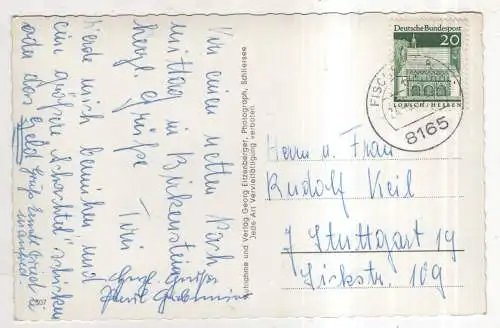 Von einen netten Nach
mittag in Birkenstein
herzl. Grüße
Toni
Werde mich bemühen und
ein größere Schachtel schicken
oder das Geld
Gruß
Deutsche Bundespost
20
LORSCH / HESSEN
FISCH
8165
Aufnahme und Verlag Georg Etzenberger, Photograph, Schliersee
Jede Art Vervielfältigung verboten
Herrn u. Frau
Rudolf Keil
7 Stuttgart 19
Zirkstr. 109
807